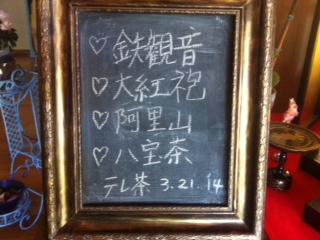 ♡ 鉄観音
♡ 大紅袍
♡ 阿里山
♡ 八宝茶
テレ茶 3.21.14